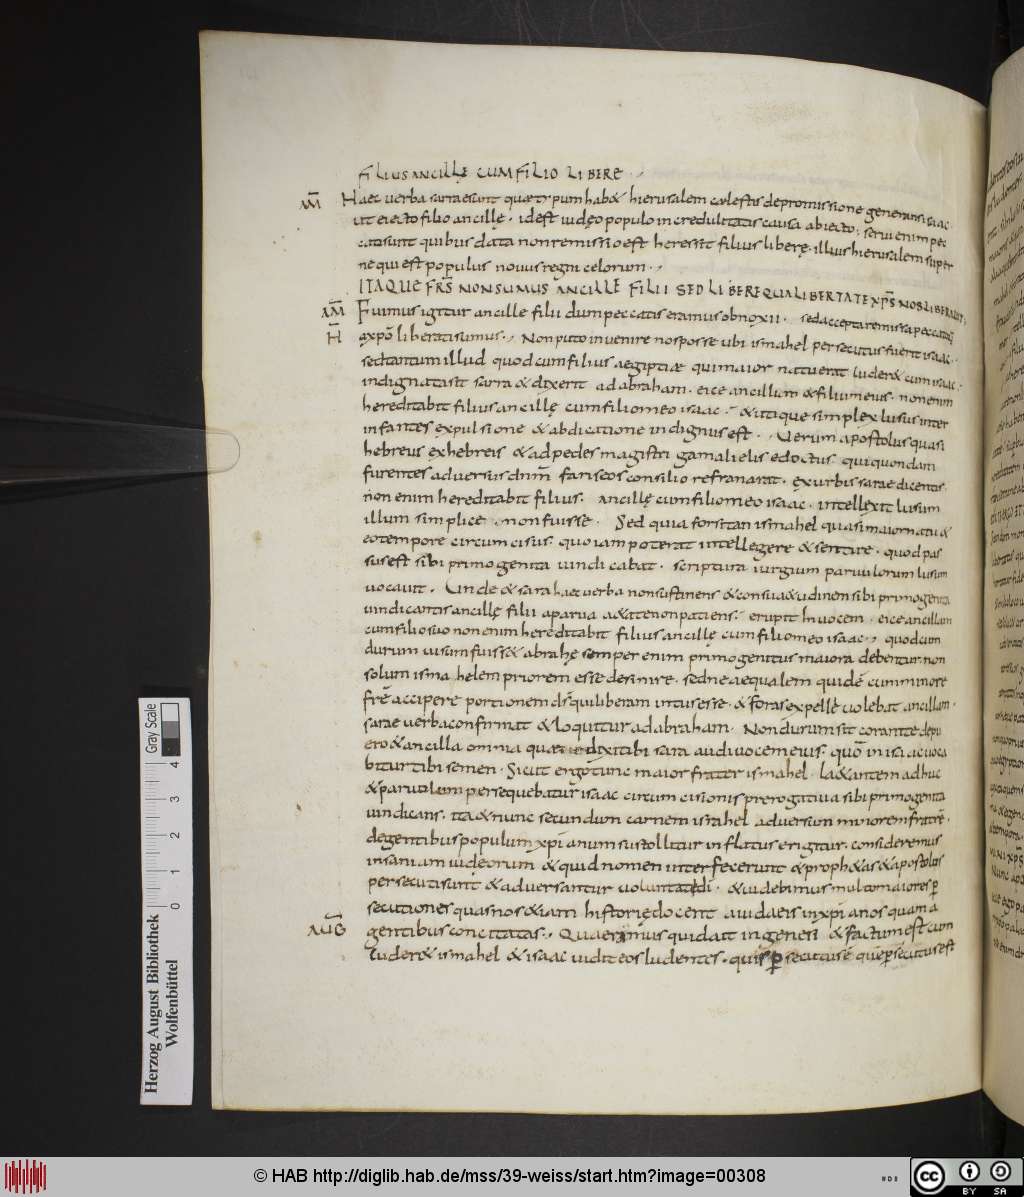 FILIUS ANCILLĘ CUM FILIO LIBERE
AM̅ Haec verba sarrae sunt quae typum habet hierusalem caelestis de promissione generans isaac
ut eiecto filio ancillę . id est iudęo populo incredulitatis causa abiecto ; servi enim pec
cati sunt quibus data non remissio est heres sit filius liberę . illius hierusalem super
ne qui est populus novus regni celorum .
ITAQUE FRS̅ NON SUMUS ANCILLĘ FILII SED LIBERE QUA LIBERTATE XPS̅ NOS LIBERAVIT ;
AM̅ Fuimus igitur ancille filii dum peccatis eramus obnoxii . sed accepta remissa peccatorũ
H̅ a xpo̅ liberati sumus . Non puto invenire nos posse ubi ismahel persecutus fuerit isaac .
sed tantum illud quod cum filius aegiptiae qui maior natu erat luderet cum isaac .
indignata sit sarra et dixerit ad abraham . eice ancillam et filium eius . non enim
hereditabit filius ancillę cum filio meo isaac . et utique simplex lusus inter
infantes expulsione et abdicatione indignus est . Verum apostolus quasi
hebreus ex hebreis et ad pedes magistri gamalielis edoctus . qui quondam
furentes adversus dnm̅ fariseos consilio refranarat . ex verbis sarae dicentis .
non enim hereditabit filius . ancillę cum filio meo isaac . intellexit lusum
illum simplicẽ non fuisse . Sed quia forsitan ismahel quasi maior natu et
eo tempore circumcisus . quo iam poterat intellegere et sentire . quod pas
sus est sibi primogenita vindicabat . scriptura iurgium parvulorum lusum
vocavit . Unde et sara haec verba non sustinens et consuaetudinem sibi primogenita
vindicantis ancillę filii a parva aetate non patiens . erupit in vocem . eice ancillam
cum filio suo non enim hereditabit filius ancillę cum filio meo isaac . quod cum
durum visum fuisset abrahę semper enim primogenitus maiora debentur . non
solum ismahelem priorem esse desinire . sed ne aequalem quidẽ cum minore
frẽ accipere portionem
sarae verba confirmat et loquitur ad abraham . Non durum sit coram te de pu
ero et ancilla omnia quae dixit tibi sara audi vocem eius . quo̅ in isaac voca
bitur tibi semen . Sicut ergo tunc maior frater ismahel . lactentem adhuc
et parvulum persequebatur isaac circumcisionis prerogativa sibi primogenita
vindicans . ita et nunc secundum carnem israhel adversum minorem fratrẽ .
de gentibus populum xpi̅anum sustollitur inflatus erigitur . consideremus
insaniam iudęorum et quid nomen interfecerunt et prophetas et apostolos
persecuti sunt et adversantur voluntati di̅ . et videbimus multo maiores per
secutiones quas nos etiam historię docent a iudaeis in xpi̅anos quam a
AUG gentibus concitatas . Quaerimus quid ait in genesi et factum est cum
luderet ismahel et isaac vidit eos ludentes . quis persecutus ẽ quẽ persecutus est
© HAB http://diglib.hab.de/mss/39-weiss/start.htm?image=00308
Herzog August Bibliothek
Wolfenbüttel
0 1 2 3 4
Gray Scale
BY SA